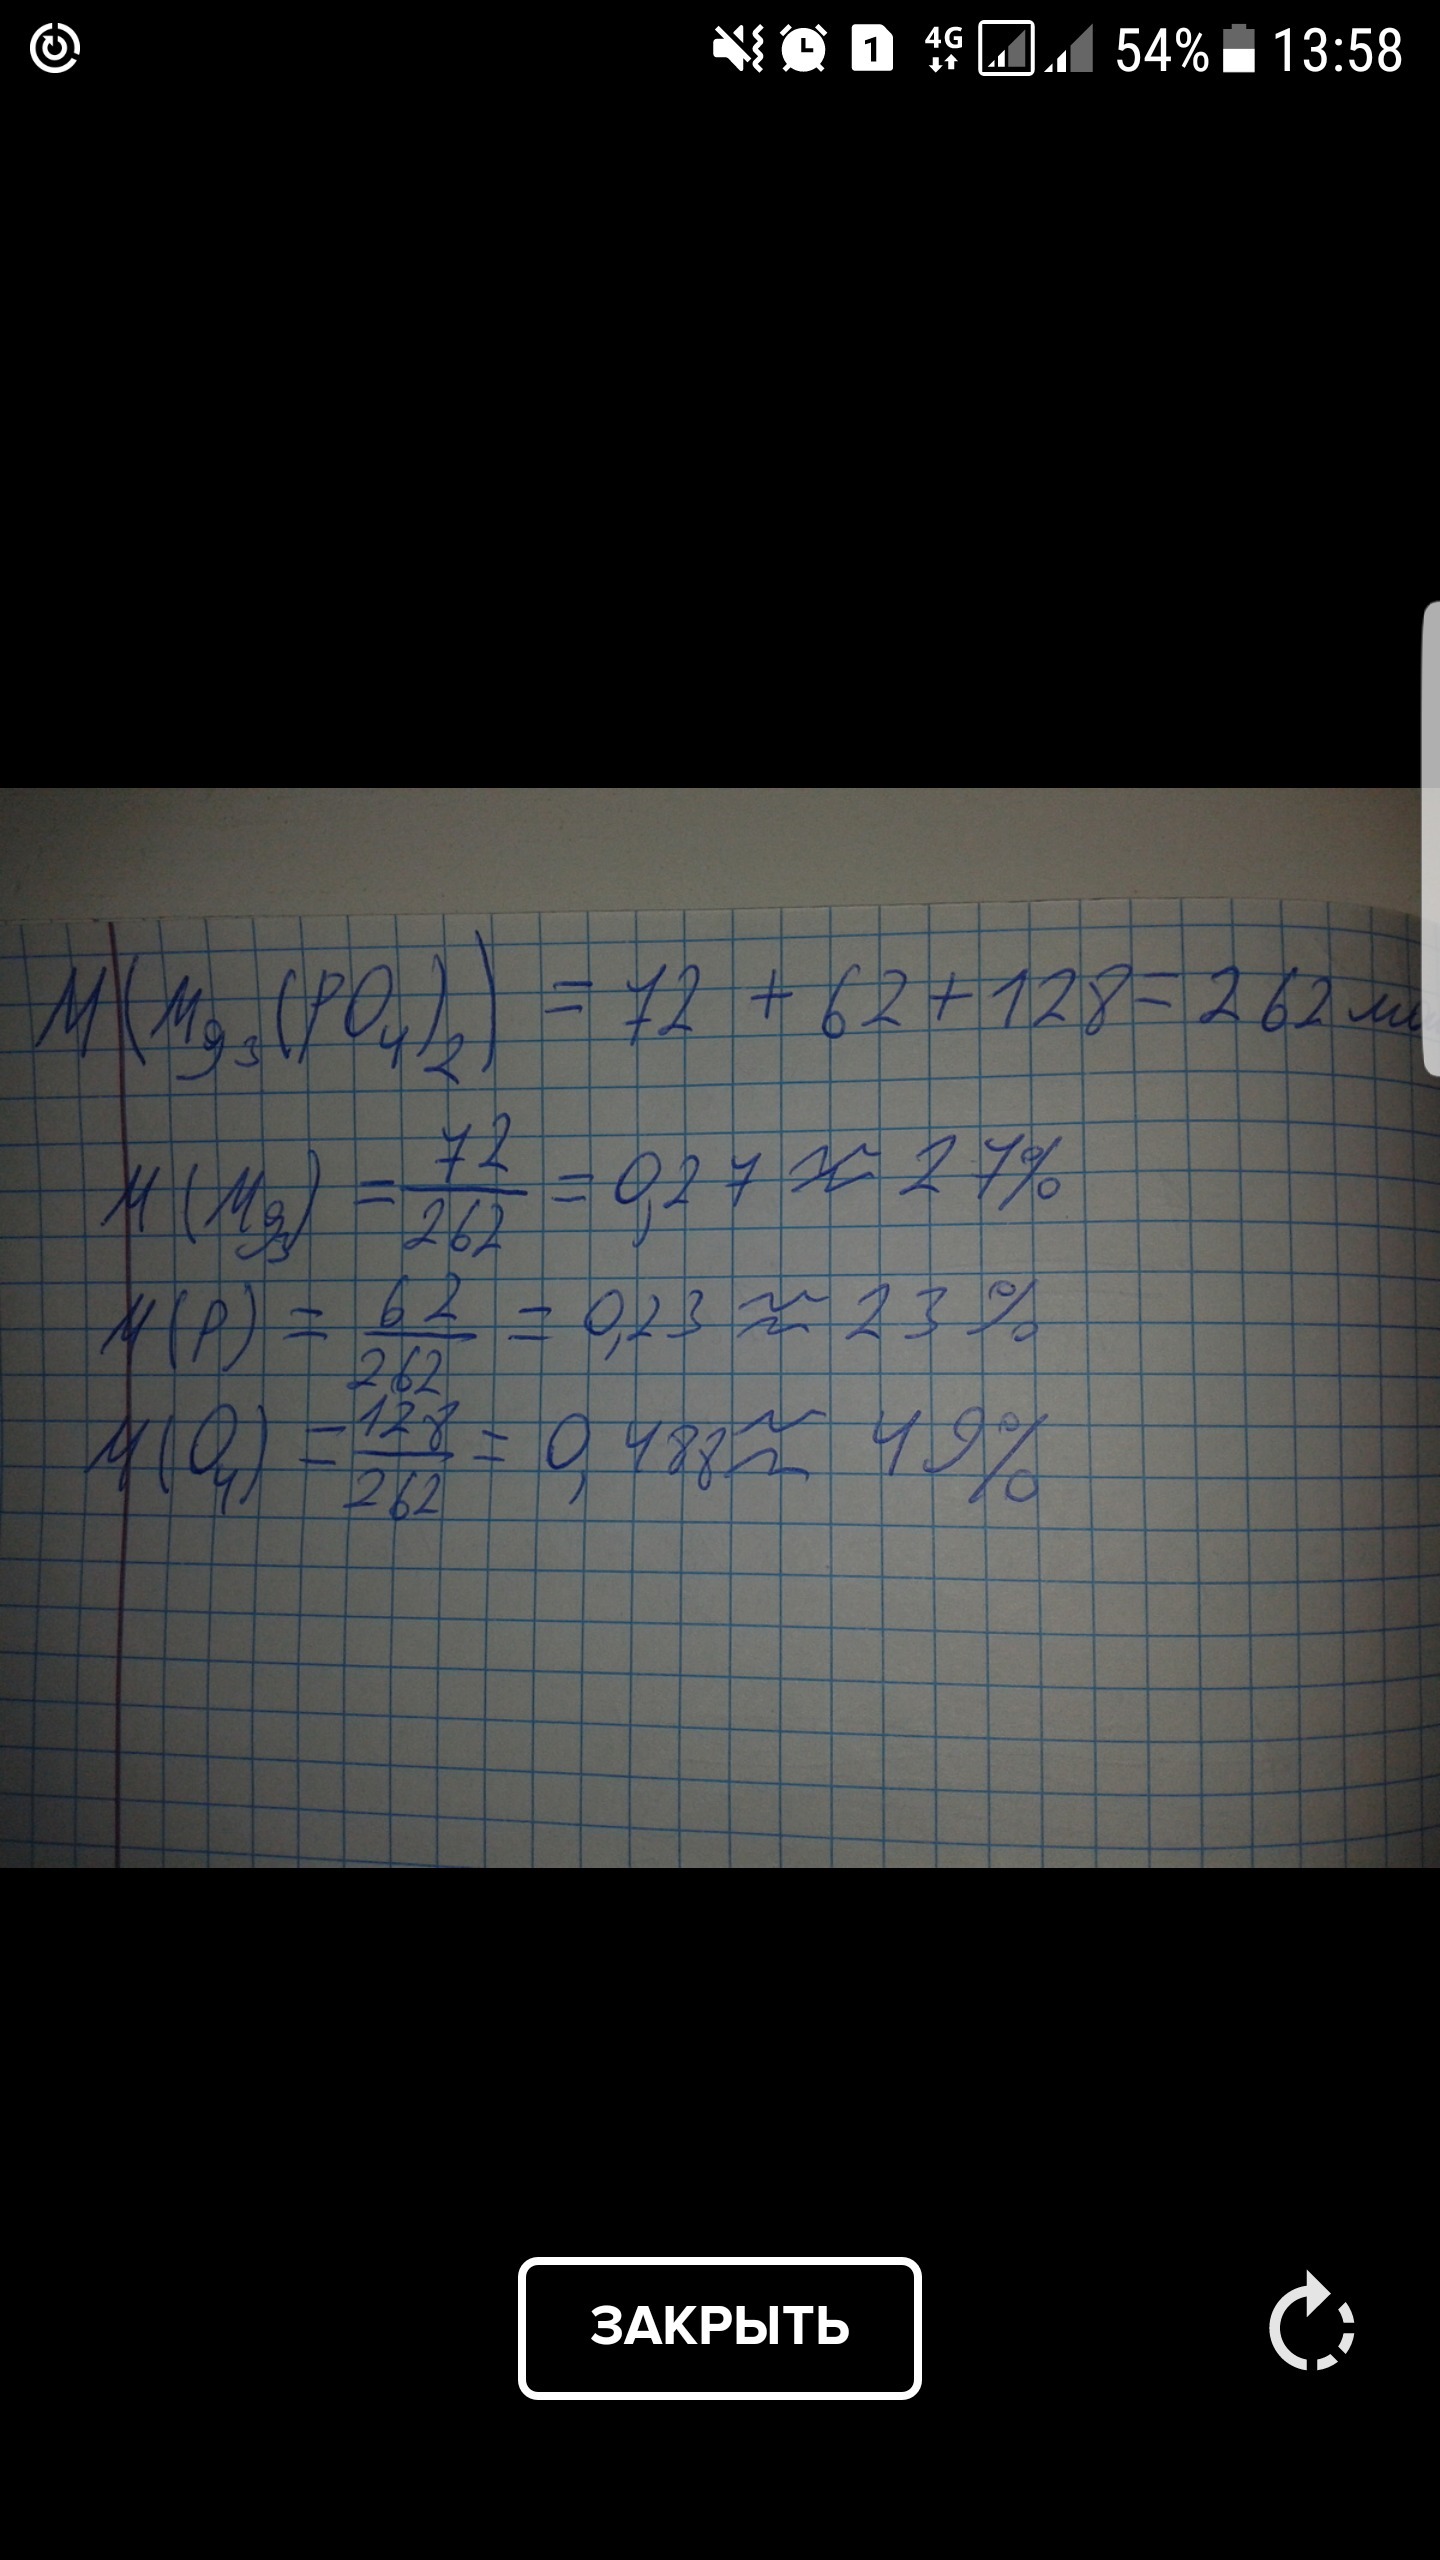 1 4G 54% 13:58
M(Mg₃(PO₄)₂) = 72 + 62 + 128 = 262
M(Mg₃) = 72/262 = 0,27 ≈ 27%
M(P) = 62/262 = 0,23 ≈ 23%
M(O₄) = 128/262 = 0,488 ≈ 49%
ЗАКРЫТЬ